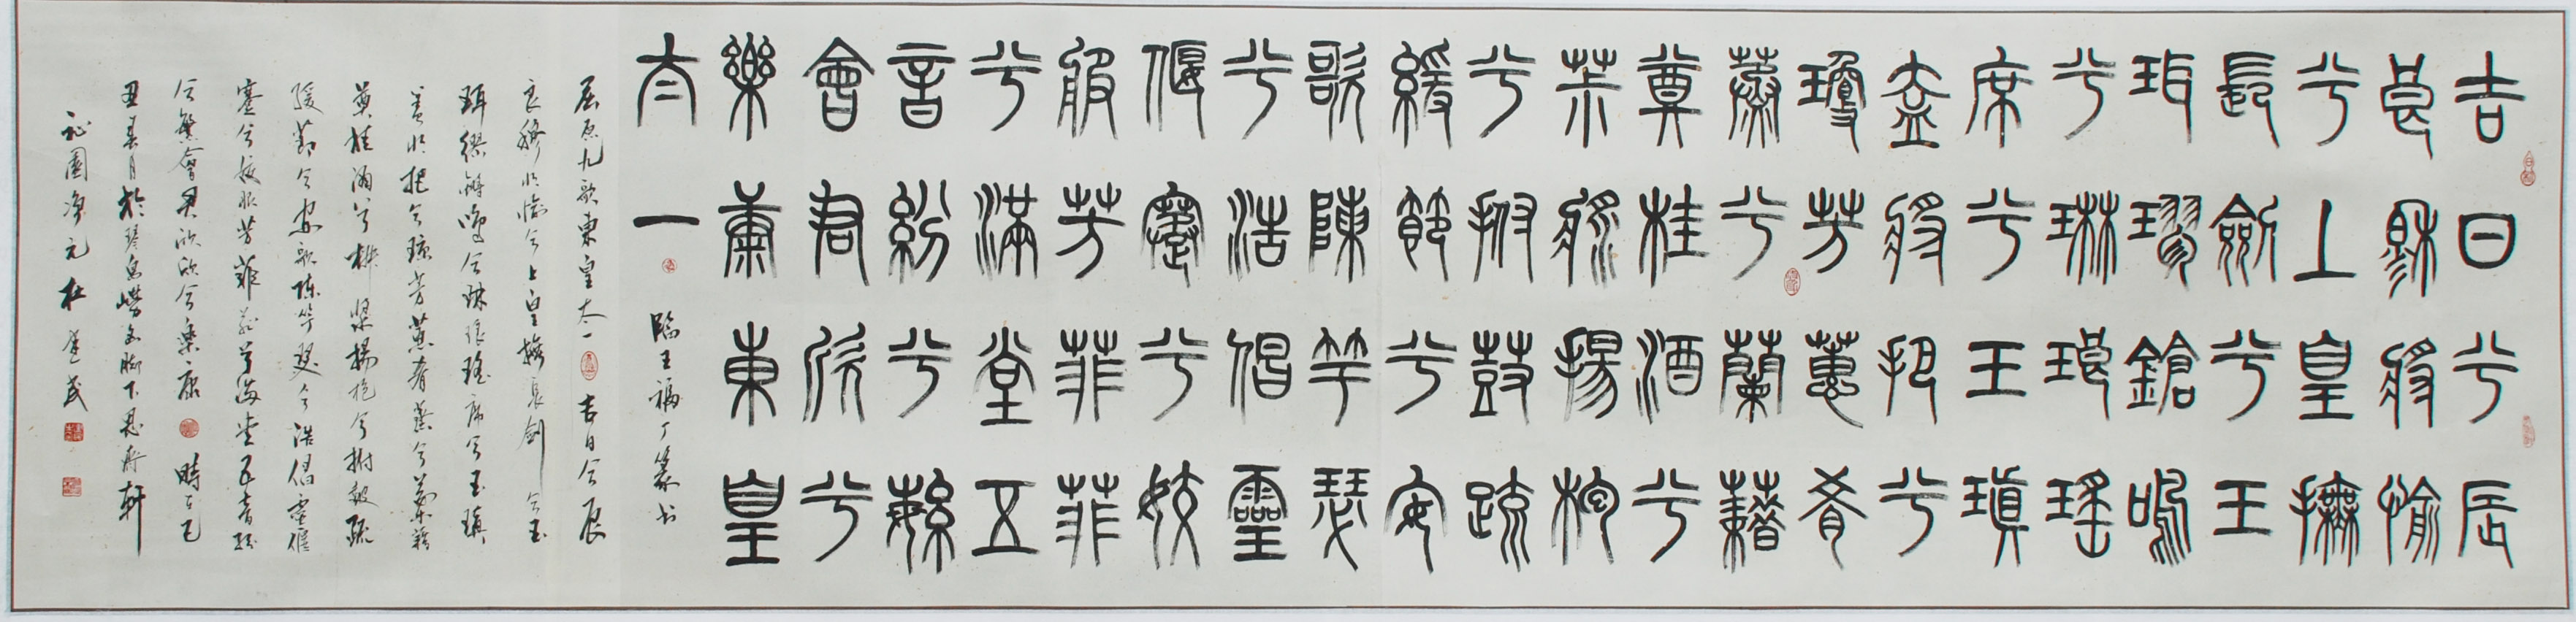 吉日兮辰
良穆將愉
兮上皇撫
長劍兮玉
珥璆鎗鳴
兮琳琅瑤
席兮玉瑱
盍將把兮
瓊芳蕙肴
蒸兮蘭藉
奠桂酒兮
茮漿揚枹
兮拊鼓疏
緩節兮安
歌陳竽瑟
兮浩倡靈
偃蹇兮姣
服芳菲菲
兮滿堂五
音紛兮緐
會君欣兮
樂康東皇
太一
臨王福厂篆书
屈原九歌東皇太一 吉日兮辰
良穆将愉兮上皇撫長劍兮玉
珥璆鏘鳴兮琳琅瑤席兮玉瑱
盍将把兮瓊芳蕙肴蒸兮蘭藉
奠桂酒兮椒漿揚枹兮拊鼓疏
緩節兮安歌陈竽瑟兮浩倡靈偃
蹇兮姣服芳菲菲兮满堂五音紛
兮繁會君欣欣兮樂康 時
丑春月於琴島嶗 脚下 軒
園净元 杜 茂